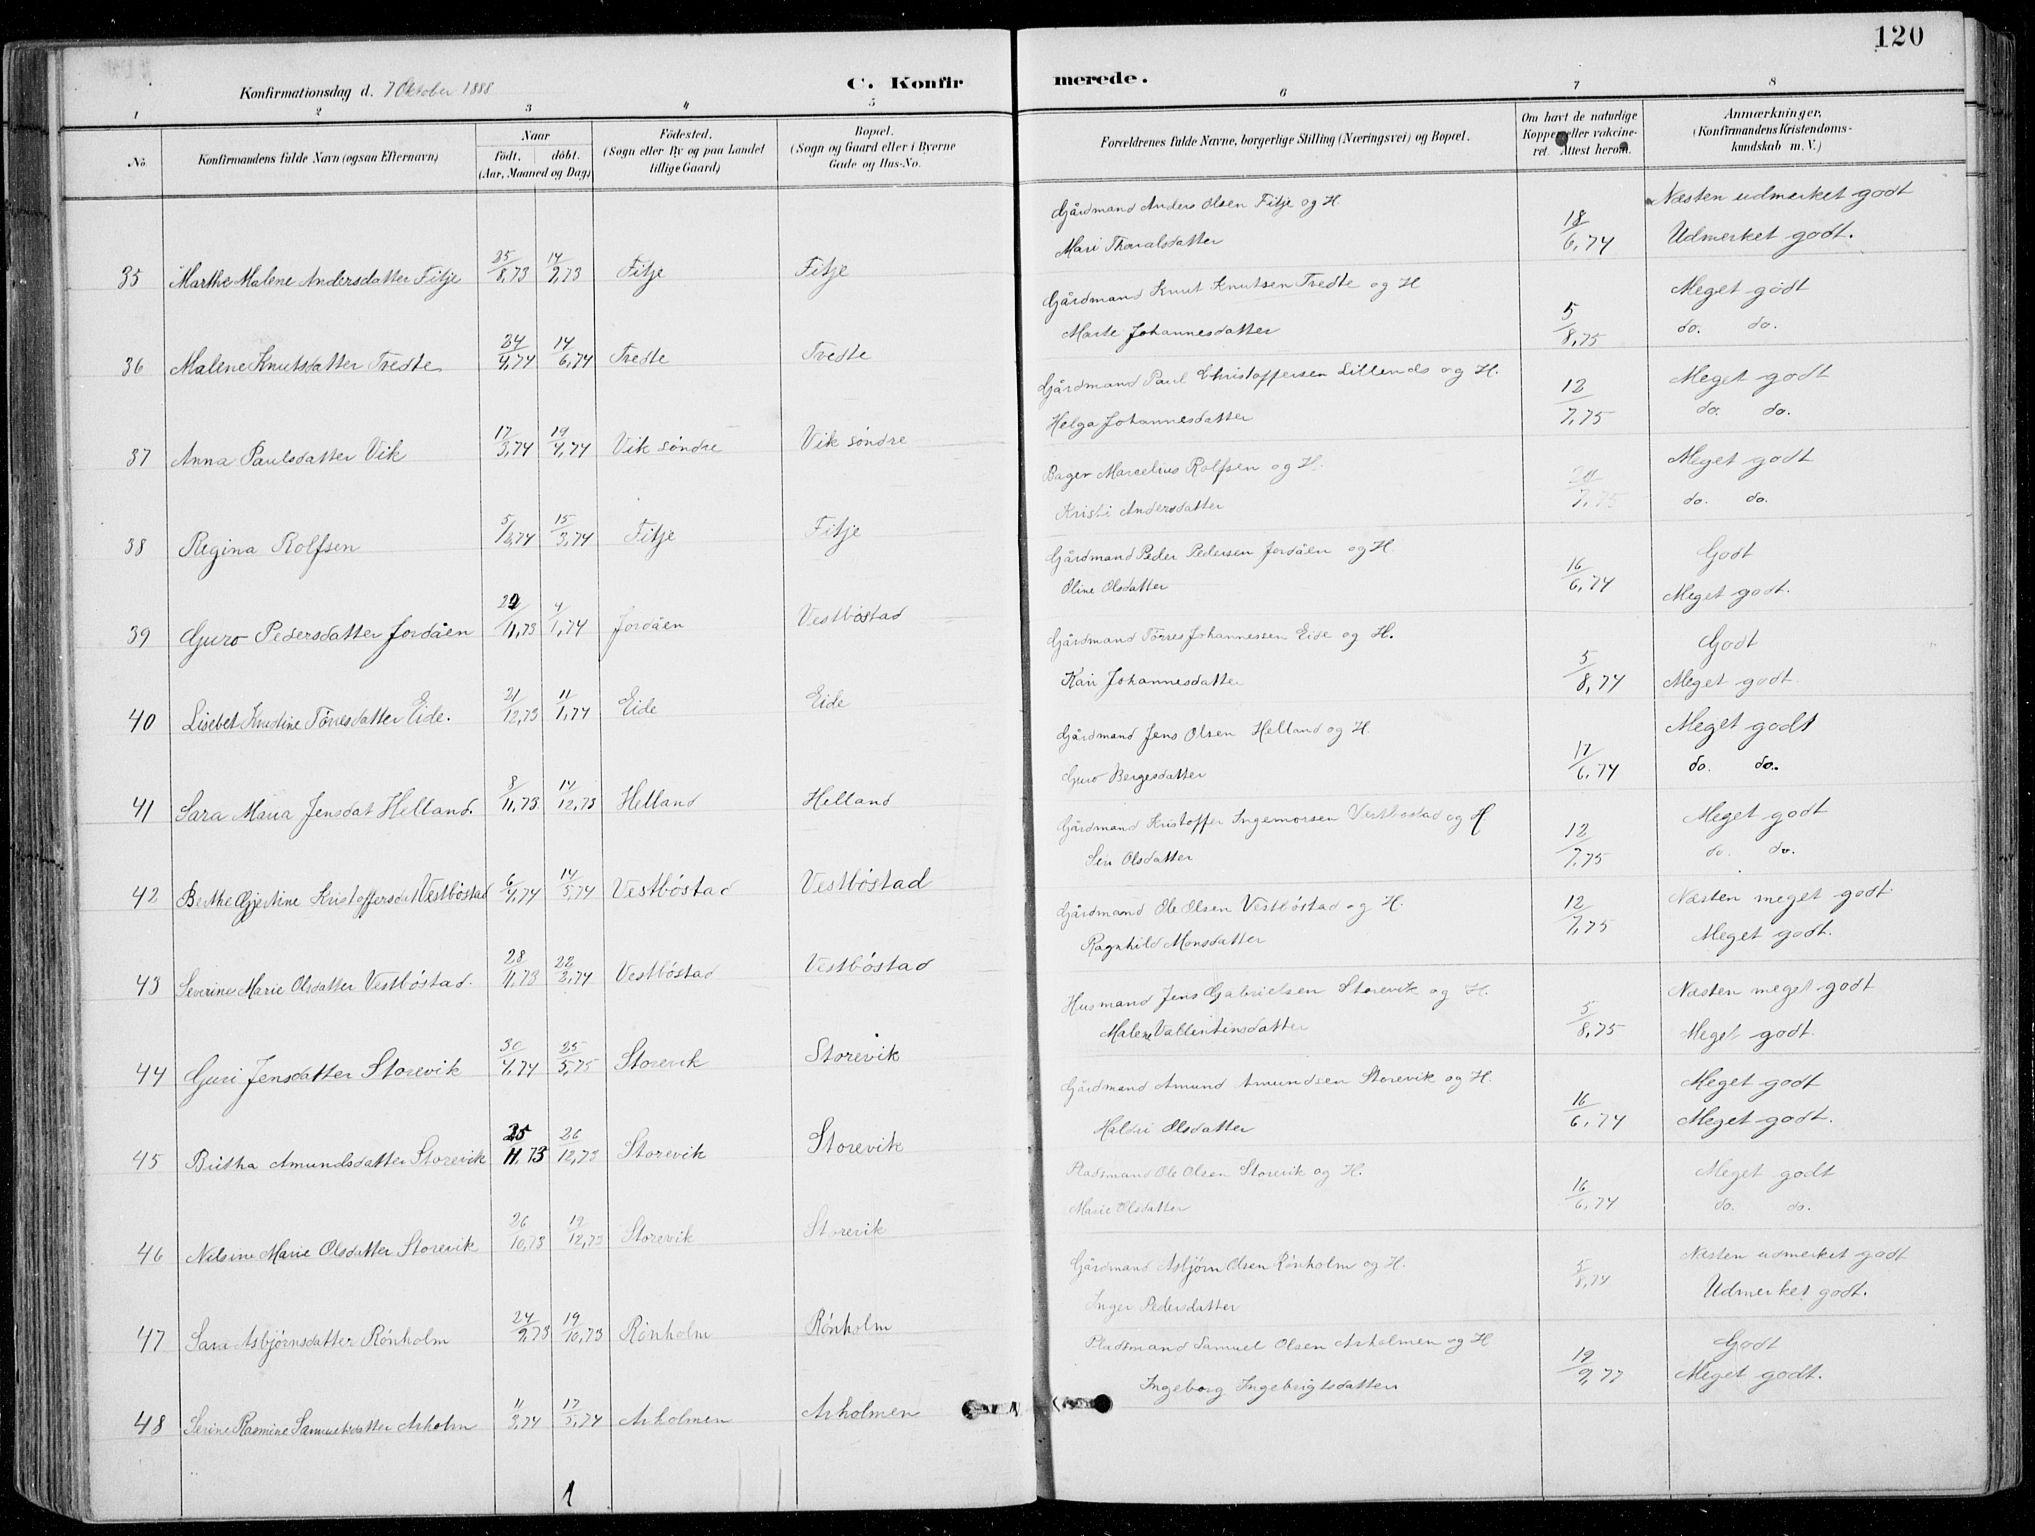 120
Konfirmationsdag d. 7 Oktober 1888
C. Konfirmerede.
1 2 3 4 5 6 7 8
No. Konfirmandens fulde Navn (ogsaa Efternavn) Naar födt. döbt. (Aar, Maaned og Dag) Födested. (Sogn eller By og paa Landet tillige Gaard) Bopæl. (Sogn og Gaard eller i Byerne Gade og Hus-No. Forældrenes fulde Navne, borgerlige Stilling (Næringsvei) og Bopæl. Om havt de naturlige Kopper eller vakcineret. Attest herom. Anmærkninger, (Konfirmandens Kristendomskundskab m. V.)
35 Marthe Malene Andersdatter Fitje 25/8,73 14/9,73 Fitje Fitje Gårdmand Anders Olsen Fitje og H. 18/6,74 Næsten udmerket godt
Mari Thoralsdatter Udmerket godt.
36 Malene Knutsdatter Tredte 24/4,74 14/6,74 Tredte Tredte Gårdmand Knut Knutsen Tredte og H 5/8,75 Meget godt
Marte Johannesdatter do. do.
37 Anna Paulsdatter Vik 17/3,74 19/4,74 Vik söndre Vik söndre Gårdmand Paul Christoffersen Lillenes og H. 12/7,75 Meget godt
Helga Johannesdatter do. do.
38 Regina Rolfsen 5/2,74 15/3,74 Fitje Fitje Bager Marcelius Rolfsen og H. /7,75 Meget godt
Kristi Andersdatter do. do.
39 Guro Pedersdatter Jordåen 29/11,73 4/1,74 Jordåen Vestböstad Gårdmand Peder Pedersen Jordåen og H. 16/6,74 Godt
Oline Olsdatter Meget godt.
40 Lisebet Knudine Törresdatter Eide. 21/12,73 11/1,74 Eide Eide Gårdmand Törres Johannessen Eide og H. 5/8,74 Godt
Kari Johannesdatter Meget godt.
41 Sara Maria Jensdat Helland. 8/11,73 14/12,73 Helland Helland Gårdmand Jens Olsen Helland og H. 17/6,74 Meget godt
Guro Bergesdatter do. do.
42 Berthe Gjertine Kristoffersdat Vestböstad 6/4,74 14/5,74 Vestböstad Vestböstad Gårdmand Kristoffer Ingemorsen Vestböstad og H 12/7,75 Meget godt
Siri Olsdatter do. do.
43 Severine Marie Olsdatter Vestböstad. 28/11,73 22/2,74 Vestböstad Vestböstad Gårdmand Ole Olsen Vestböstad og H. 12/7,75 Næsten meget godt.
Ragnhild Monsdatter Meget godt.
44 Guri Jensdatter Storevik 30/4,74 25/5,75 Storevik Storevik Husmand Jens Gabrielsen Storevik og H. 5/8,75 Næsten meget godt
Malene Vallentinsdatter Meget godt.
45 Britha Amundsdatter Storevik 25/11,73 26/12,73 Storevik Storevik Gårdmand Amund Amundsen Storevik og H. 16/6,74 Meget godt
Haldri Olsdatter Meget godt.
46 Nilsine Marie Olsdatter Storevik 26/10,73 19/12,73 Storevik Storevik Pladsmand Ole Olsen Storevik og H. 16/6,74 Meget godt
Marie Olsdatter do. do.
47 Sara Asbjörnsdatter Rönholm 24/9,73 19/10,73 Rönholm Rönholm Gårdmand Asbjörn Olsen Rönholm og H. 5/8,74 Næsten udmerket godt
Inger Pedersdatter Udmerket godt.
48 Serine Rasmine Samuelsdatter Arholm 11/3,74 17/5,74 Arholmen Arholmen Pladsmand Samuel Olsen Arholmen og H 19/9,77 Godt
Ingeborg Ingebrigtsdatter Meget godt.